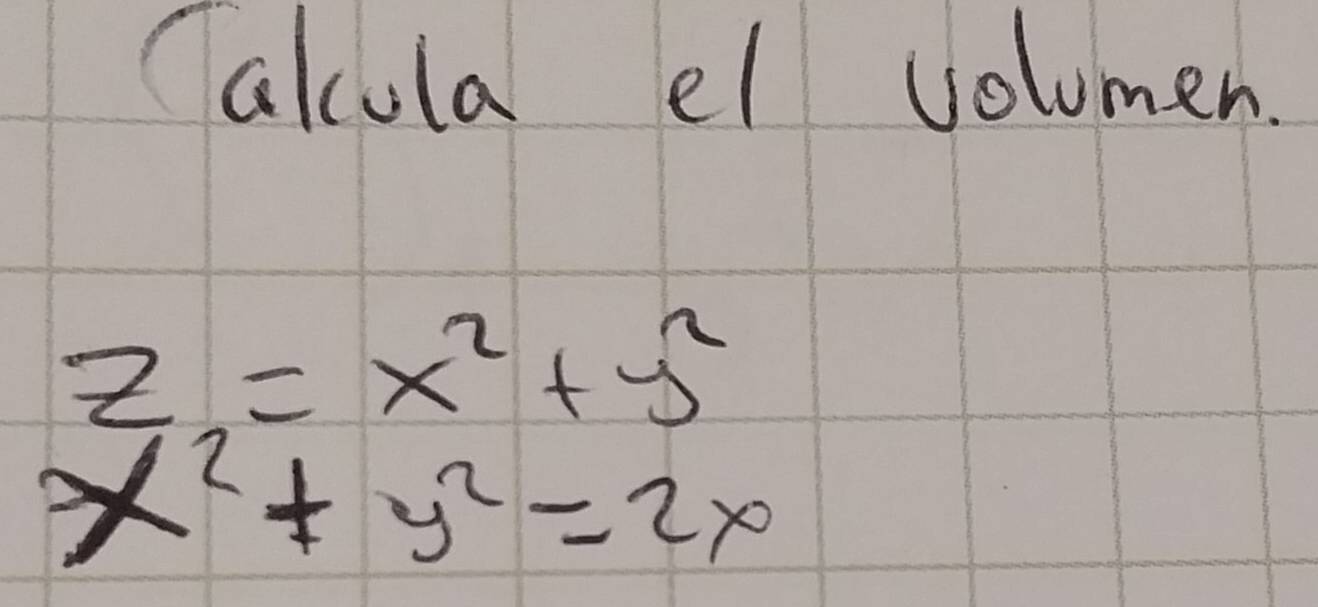 Calcula el volumen.
z = x² + y²
x² + y² = 2x